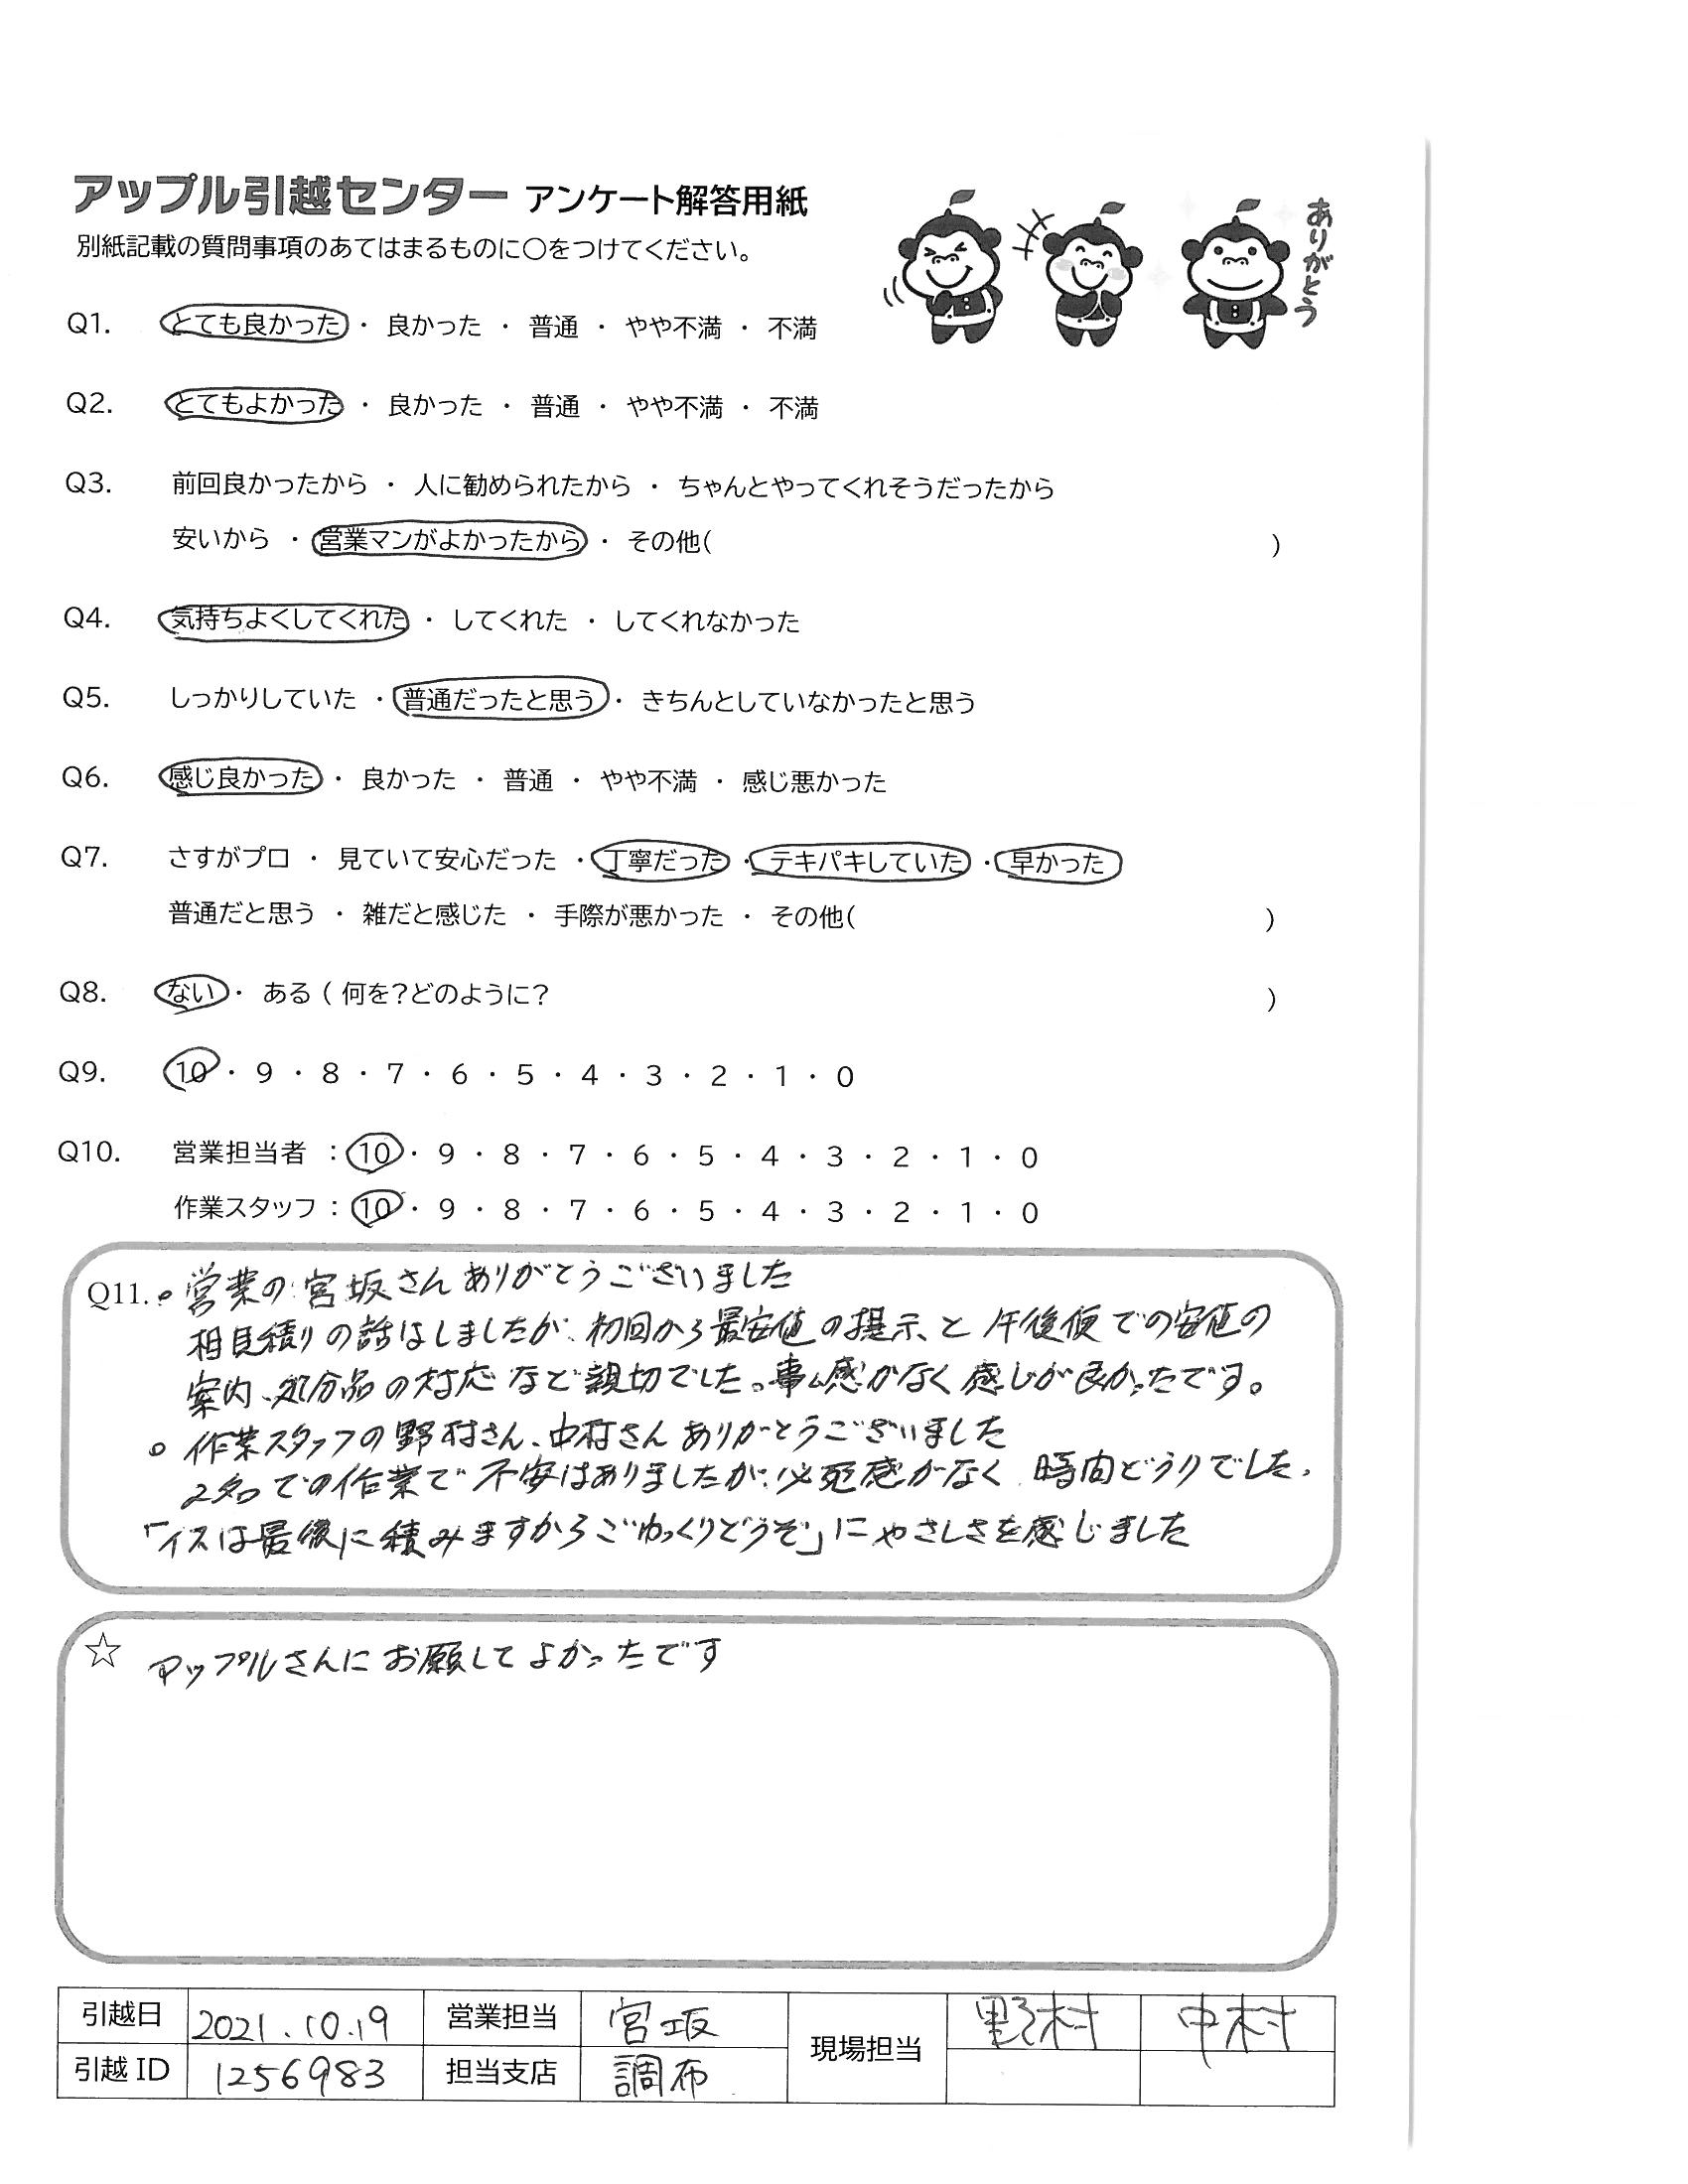 アップル引越センター アンケート解答用紙
ありがとう
別紙記載の質問事項のあてはまるものに○をつけてください。
Q1. とても良かった ・ 良かった ・ 普通 ・ やや不満 ・ 不満
Q2. とてもよかった ・ 良かった ・ 普通 ・ やや不満 ・ 不満
Q3. 前回良かったから ・ 人に勧められたから ・ ちゃんとやってくれそうだったから
安いから ・ 営業マンがよかったから ・ その他( )
Q4. 気持ちよくしてくれた ・ してくれた ・ してくれなかった
Q5. しっかりしていた ・ 普通だったと思う ・ きちんとしていなかったと思う
Q6. 感じ良かった ・ 良かった ・ 普通 ・ やや不満 ・ 感じ悪かった
Q7. さすがプロ ・ 見ていて安心だった ・ 丁寧だった ・ テキパキしていた ・ 早かった
普通だと思う ・ 雑だと感じた ・ 手際が悪かった ・ その他( )
Q8. ない ・ ある ( 何を?どのように? )
Q9. 10 ・ 9 ・ 8 ・ 7 ・ 6 ・ 5 ・ 4 ・ 3 ・ 2 ・ 1 ・ 0
Q10. 営業担当者 : 10 ・ 9 ・ 8 ・ 7 ・ 6 ・ 5 ・ 4 ・ 3 ・ 2 ・ 1 ・ 0
作業スタッフ : 10 ・ 9 ・ 8 ・ 7 ・ 6 ・ 5 ・ 4 ・ 3 ・ 2 ・ 1 ・ 0
Q11. 。営業の宮坂さんありがとうございました
相見積りの話はしましたが、初回から最安値の提示と午後便での安値の
案内、処分品の対応など親切でした。感がなく感じが良かったです。
。作業スタッフの野村さん、中村さんありがとうございました
2名での作業で不安はありましたが、必死感がなく 時間どうりでした、
「イスは最後に積みますからごゆっくりどうぞ」にやさしさを感じました
☆ アップルさんにお願してよかったです
引越日 2021.10.19 営業担当 宮坂 現場担当 野村 中村
引越ID 1256983 担当支店 調布